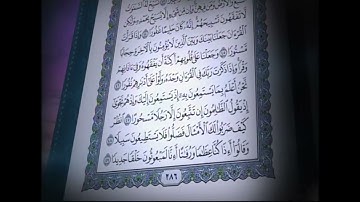 لَّا تَفْقَهُونَ تَسْبِيحَهُمْ إِنَّهُ كَانَ حَلِيمًا غَفُورًا ٤٤ وَإِذَا قَرَأْتَ
ٱلْقُرْءَانَ جَعَلْنَا بَيْنَكَ وَبَيْنَ ٱلَّذِينَ لَا يُؤْمِنُونَ بِٱلْءَاخِرَةِ حِجَابًا
مَّسْتُورًا ٤٥ وَجَعَلْنَا عَلَىٰ قُلُوبِهِمْ أَكِنَّةً أَن يَفْقَهُوهُ وَفِىٓ ءَاذَانِهِمْ
وَقْرًا وَإِذَا ذَكَرْتَ رَبَّكَ فِى ٱلْقُرْءَانِ وَحْدَهُ وَلَّوْا۟ عَلَىٰٓ أَدْبَٰرِهِمْ نُفُورًا ٤٦
نَّحْنُ أَعْلَمُ بِمَا يَسْتَمِعُونَ بِهِۦٓ إِذْ يَسْتَمِعُونَ إِلَيْكَ وَإِذْ هُمْ نَجْوَىٰٓ
إِذْ يَقُولُ ٱلظَّٰلِمُونَ إِن تَتَّبِعُونَ إِلَّا رَجُلًا مَّسْحُورًا ٤٧ ٱنظُرْ
كَيْفَ ضَرَبُوا۟ لَكَ ٱلْأَمْثَالَ فَضَلُّوا۟ فَلَا يَسْتَطِيعُونَ سَبِيلًا ٤٨
وَقَالُوٓا۟ أَءِذَا كُنَّا عِظَٰمًا وَرُفَٰتًا أَءِنَّا لَمَبْعُوثُونَ خَلْقًا جَدِيدًا ٤٩
٢٨٦